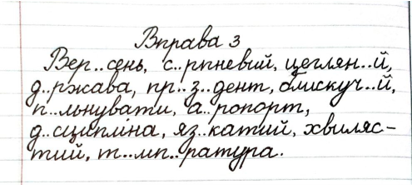 Вправа 3
Вер..сень, с..рпневий, цеглян..й,
д..ржава, пр..з..дент, блискуч..й,
п..льнувати, а..ропорт,
д..сципліна, яз..катий, хвиляс-
тий, т..мп..ратура.